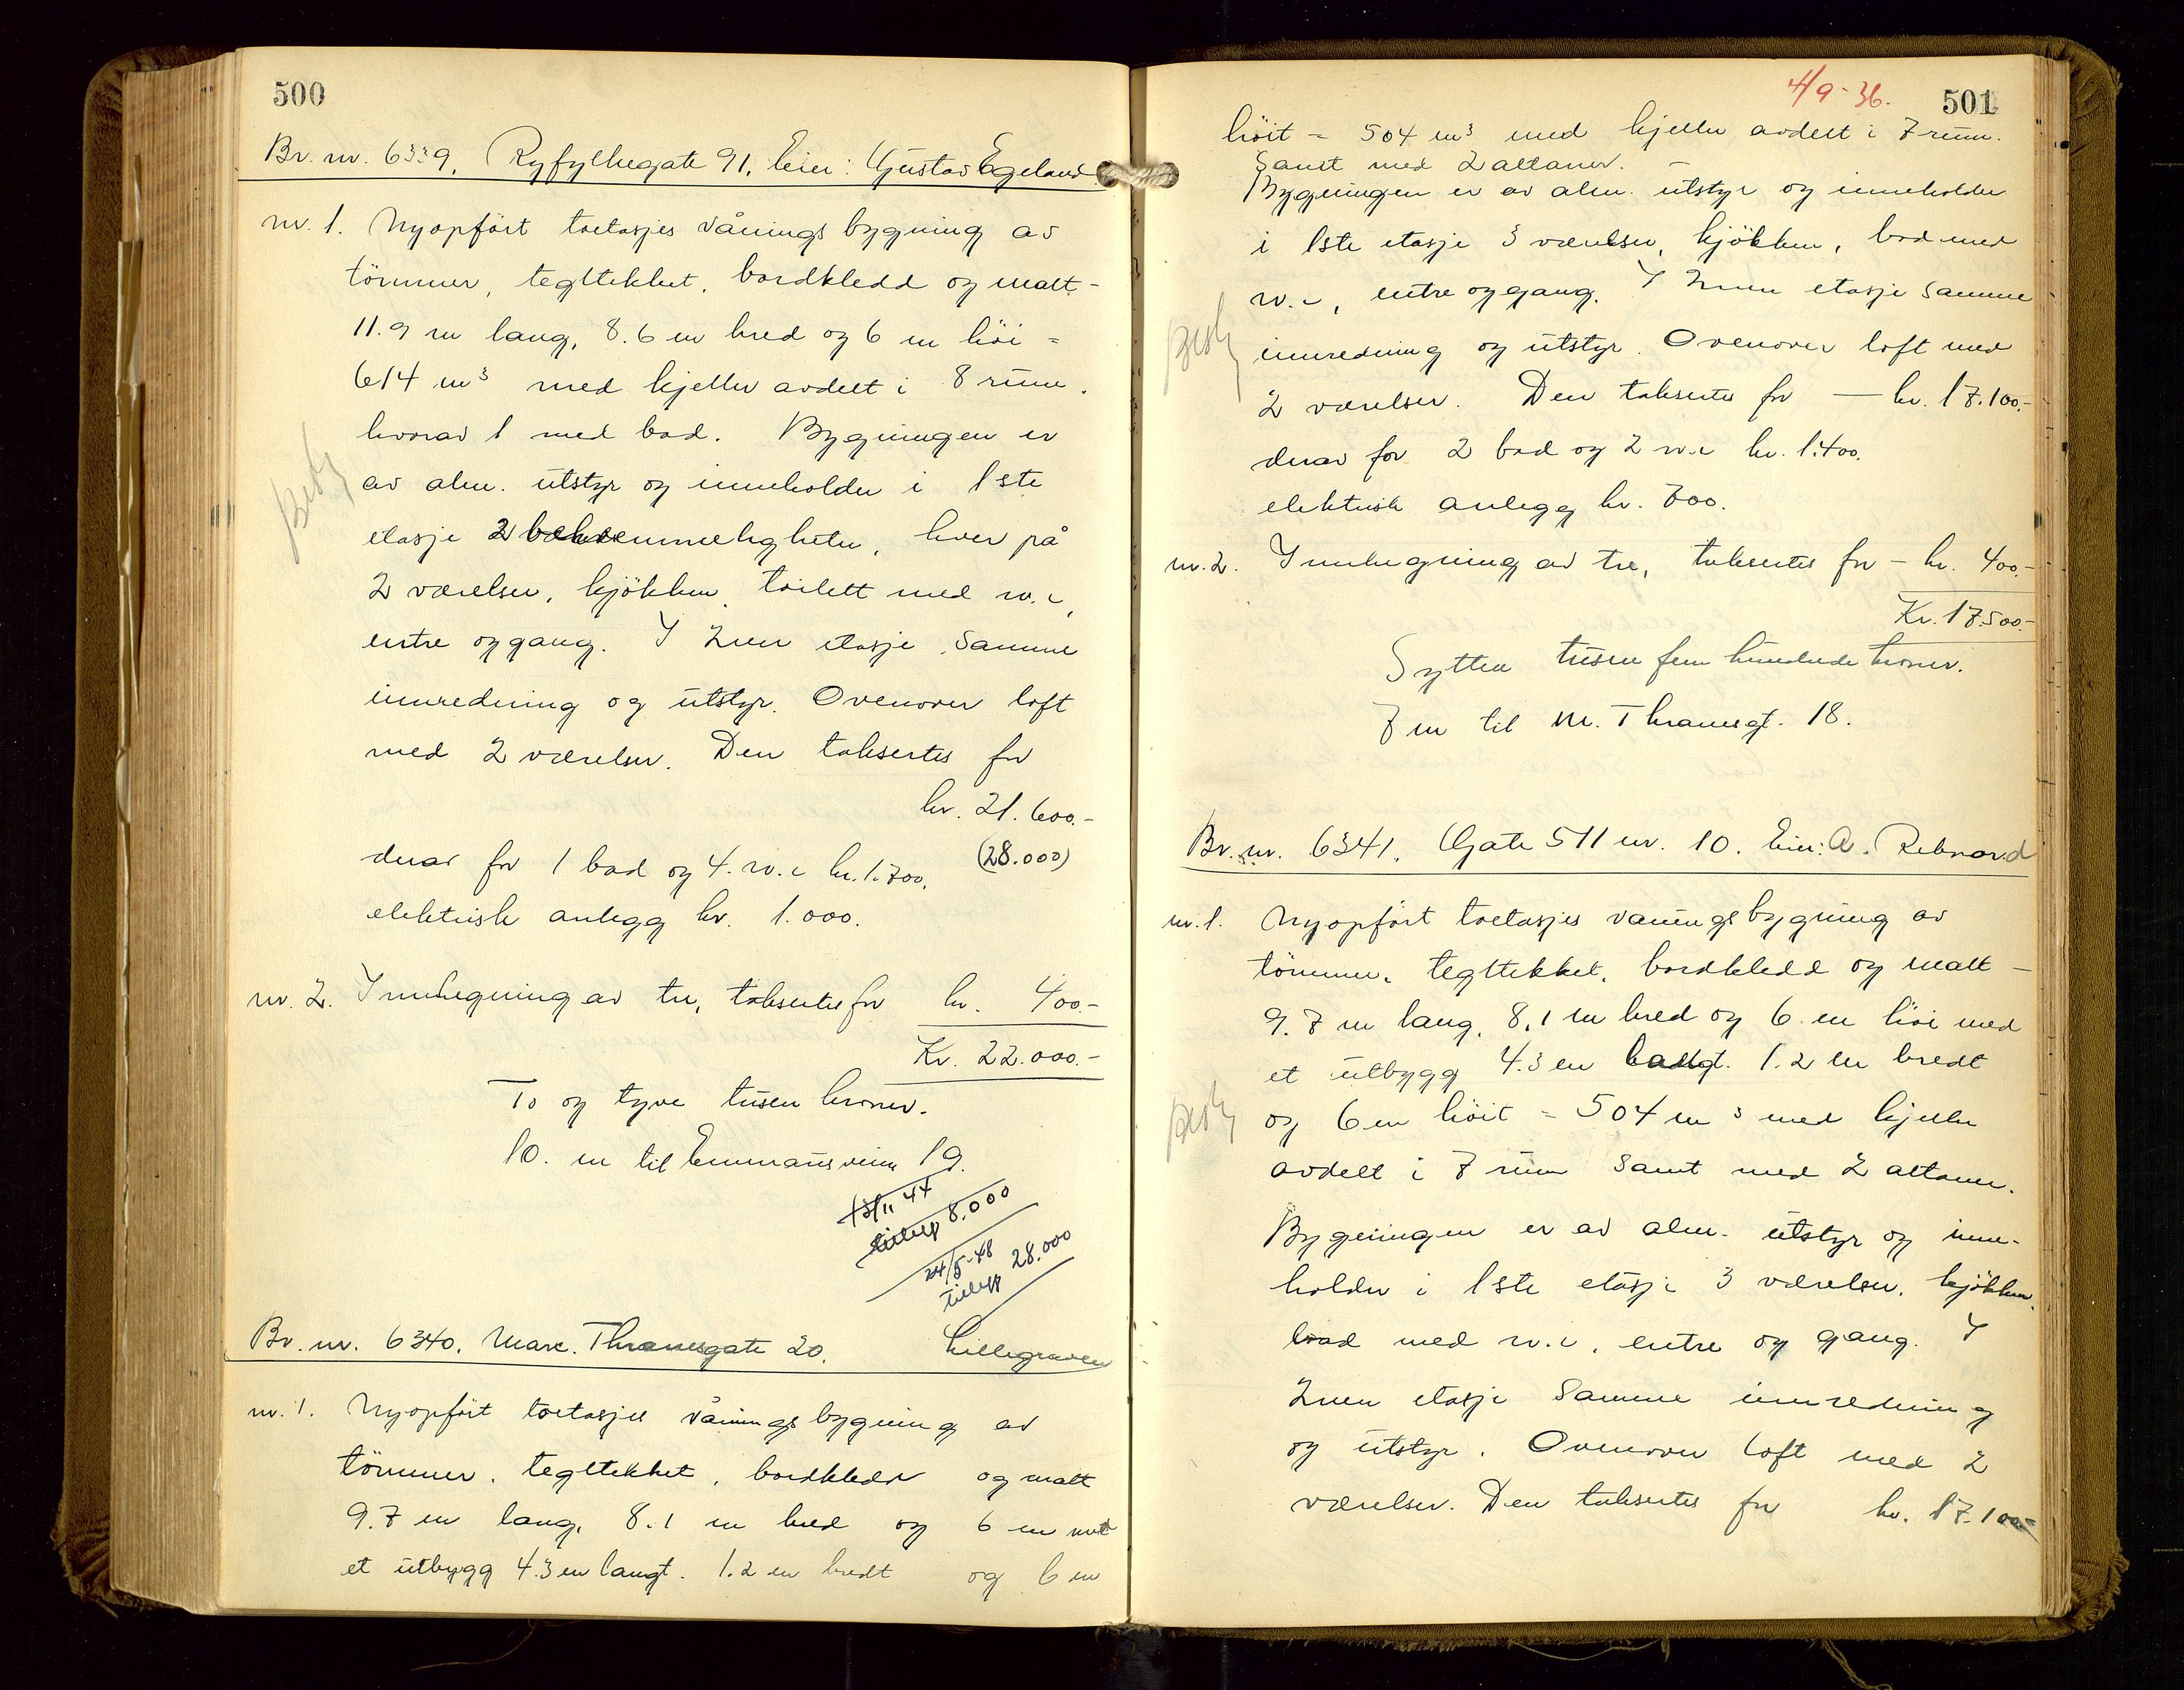 500
Br. nr. 6339. Ryfylkegate 91. Eier: Gustav Egeland.
nr. 1. Nyopført toetasjes vånings bygning av
tömmer, tegltekket, bordkledd og malt -
11.9 m lang, 8.6 m bred og 6 m höi =
614 m³ med kjeller avdelt i 8 rum.
hvorav 1 med bad. Bygningen er
av alm. utstyr og inneholder i 1ste
etasje 2 bekvemmeligheter, hver på
2 værelser, kjökken, toilett med w.c,
entre og gang. I 2nen etasje samme
innredning og utstyr. Ovenover loft
med 2 værelser. Den taksertes for
kr. 21.600.-
derav for 1 bad og 4. w.c kr. 1.700. (28.000)
elektrisk anlegg kr. 1.000.
nr. 2. Innhegning av tre, taksertes for kr. 400.-
Kr. 22.000.-
To og tyve tusen kroner.
10. m til Emmausveien 19.
13/11 44
tillegg 8.000
24/5-48
tillegg 28.000
Br. nr. 6340. Marc. Thranesgate 20. Lillegraven
nr. 1. Nyopført toetasjes vånings bygning av
tömmer. tegltekket, bordkledd og malt
9.7 m lang, 8.1 m bred og 6 m med
et utbygg 4.3 m langt. 1.2 m bredt og 6 m
4/9-36. 501
höit = 504 m³ med kjeller avdelt i 7 rum.
Samt med 2 altaner.
Bygningen er av alm. utstyr og inneholder
i 1ste etasje 3 værelser, kjökken, bad med
w.c, entre og gang. I 2nen etasje samme
innredning og utstyr. Ovenover loft med
2 værelser. Den taksertes for — kr. 17.100.-
derav for 2 bad og 2 w.c kr. 1.400.
elektrisk anlegg kr. 700.
nr. 2. Innhegning av tre, taksertes for - kr. 400.-
Kr. 17.500.-
Sytten tusen fem hundrede kroner.
7 m til M. Thranesgt. 18.
Br. nr. 6341. Gate 511 nr. 10. Eier: A. Rebnord
nr. 1. Nyopført toetasjes vaningsbygning av
tömmer, tegltekket, bordkledd og malt -
9.7 m lang, 8,1 m bred og 6 m höi med
et utbygg 4.3 m langt. 1.2 m bredt
og 6 m höit = 504 m³ med kjeller
avdelt i 7 rum samt med 2 altaner.
Bygningen er av alm. utstyr og inne-
holder i 1ste etasje 3 værelser, kjökken,
bad med w.c, entre og gang. I
2nen etasje samme innredning
og utstyr. Ovenover loft med 2
værelser. Den taksertes for kr. 17.100-